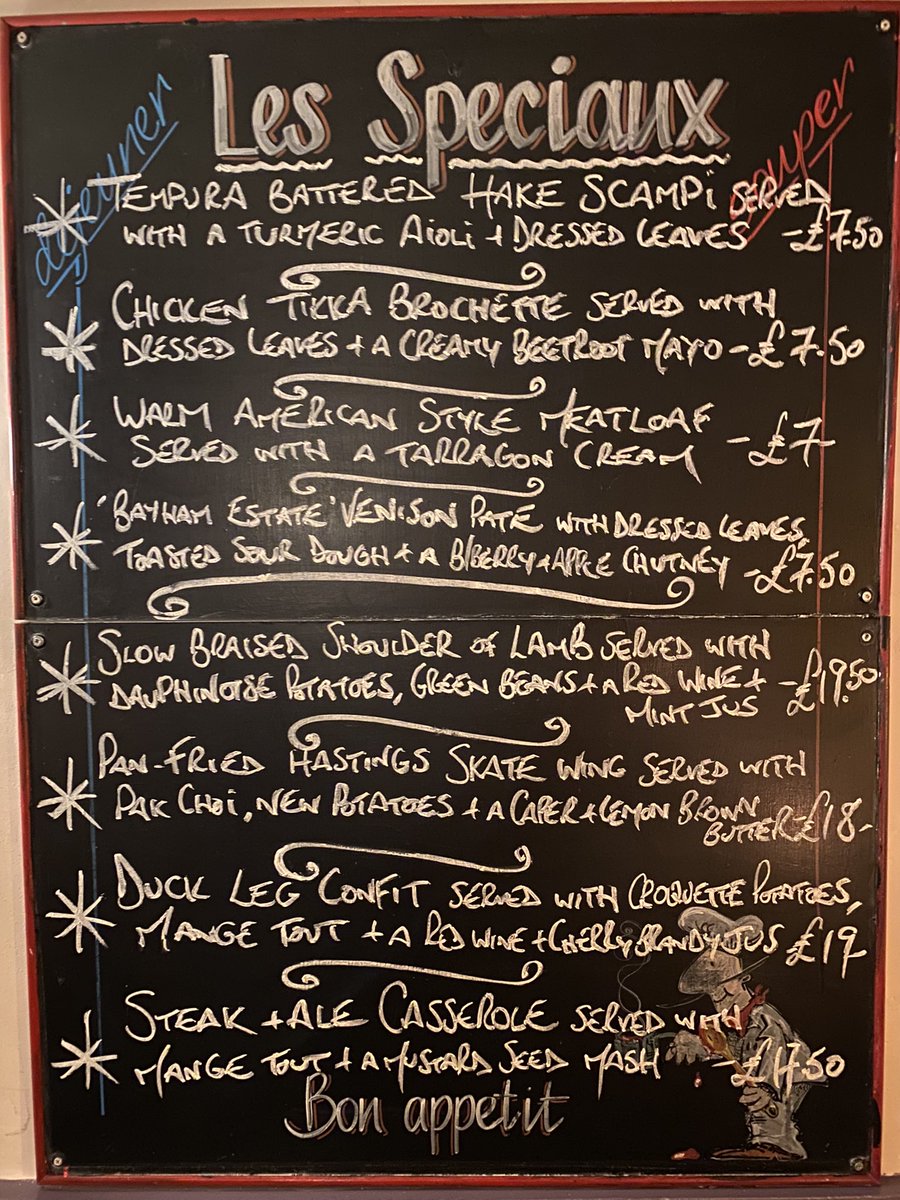 Les Speciaux
déjeuner
souper
TEMPURA BATTERED HAKE SCAMPI SERVED
WITH A TURMERIC AIOLI + DRESSED LEAVES -£7.50
CHICKEN TIKKA BROCHETTE SERVED WITH
DRESSED LEAVES + A CREAMY BEETROOT MAYO -£7.50
WARM AMERICAN STYLE MEATLOAF
SERVED WITH A TARRAGON CREAM -£7-
'BAYHAM ESTATE' VENISON PATE WITH DRESSED LEAVES,
TOASTED SOUR DOUGH + A B/BERRY + APPLE CHUTNEY -£7.50
SLOW BRAISED SHOULDER of LAMB SERVED WITH
DAUPHINOISE POTATOES, GREEN BEANS + A RED WINE + -£19.50
MINT JUS
PAN-FRIED HASTINGS SKATE WING SERVED WITH
PAK CHOI, NEW POTATOES + A CAPER + LEMON BROWN
BUTTER -£18-
DUCK LEG CONFIT SERVED WITH CROQUETTE POTATOES,
MANGE TOUT + A RED WINE + CHERRY BRANDY JUS £19-
STEAK + ALE CASSEROLE SERVED WITH
MANGE TOUT + A MUSTARD SEED MASH -£17.50
Bon appetit